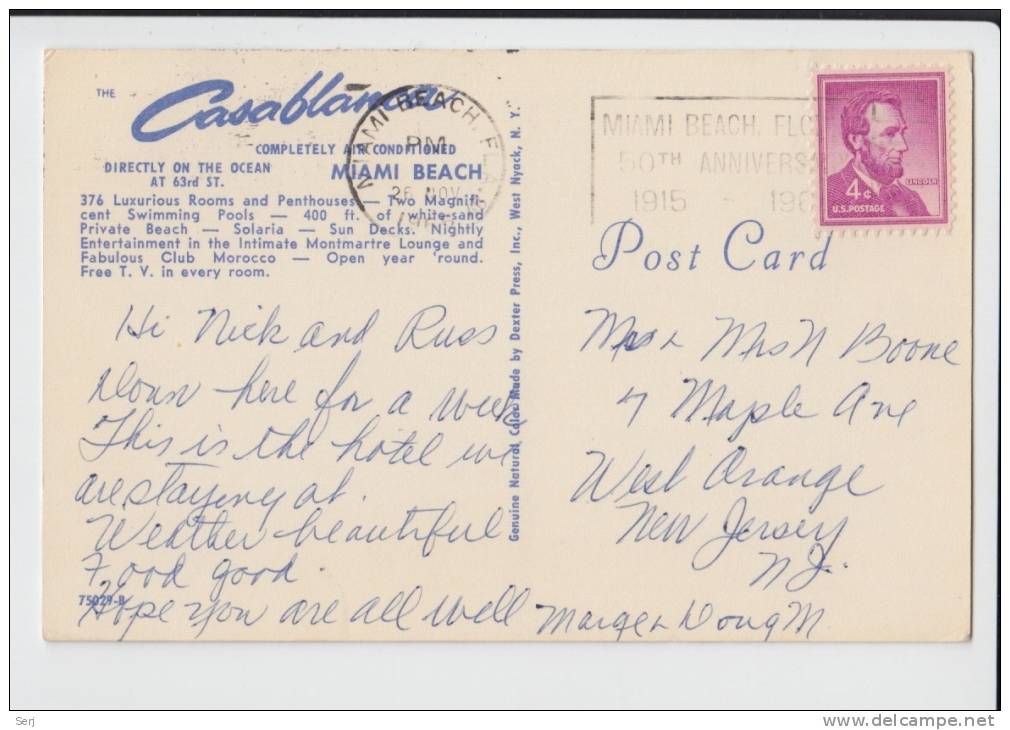 THE
Casablanca
COMPLETELY AIR CONDITIONED
DIRECTLY ON THE OCEAN
AT 63rd ST.
MIAMI BEACH
376 Luxurious Rooms and Penthouses — Two Magnifi-
cent Swimming Pools — 400 ft. of white-sand
Private Beach — Solaria — Sun Decks. Nightly
Entertainment in the Intimate Montmartre Lounge and
Fabulous Club Morocco — Open year 'round.
Free T. V. in every room.
MIAMI BEACH, FLA.
PM
26 NOV
MIAMI BEACH, FLO
50TH ANNIVERSA
1915 - 196
LINCOLN
4¢
U.S. POSTAGE
Post Card
Hi Nick and Russ
Down here for a week
This is the hotel we
are staying at.
Weather beautiful
Food good.
Hope you are all well
Marge & Doug M
75029-B
Genuine Natural Color Made by Dexter Press, Inc., West Nyack, N. Y.
Mr & Mrs N Boone
7 Maple Ave
West Orange
New Jersey
N.J.
Serj
delcampe.net